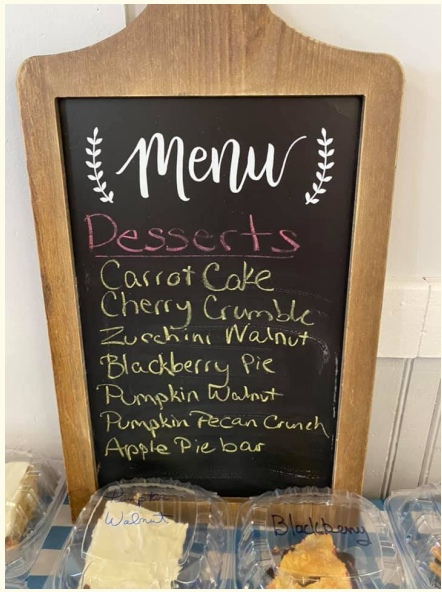 Menu
Desserts
Carrot Cake
Cherry Crumble
Zucchini Walnut
Blackberry Pie
Pumpkin Walnut
Pumpkin Pecan Crunch
Apple Pie bar
Walnut
Blackberry